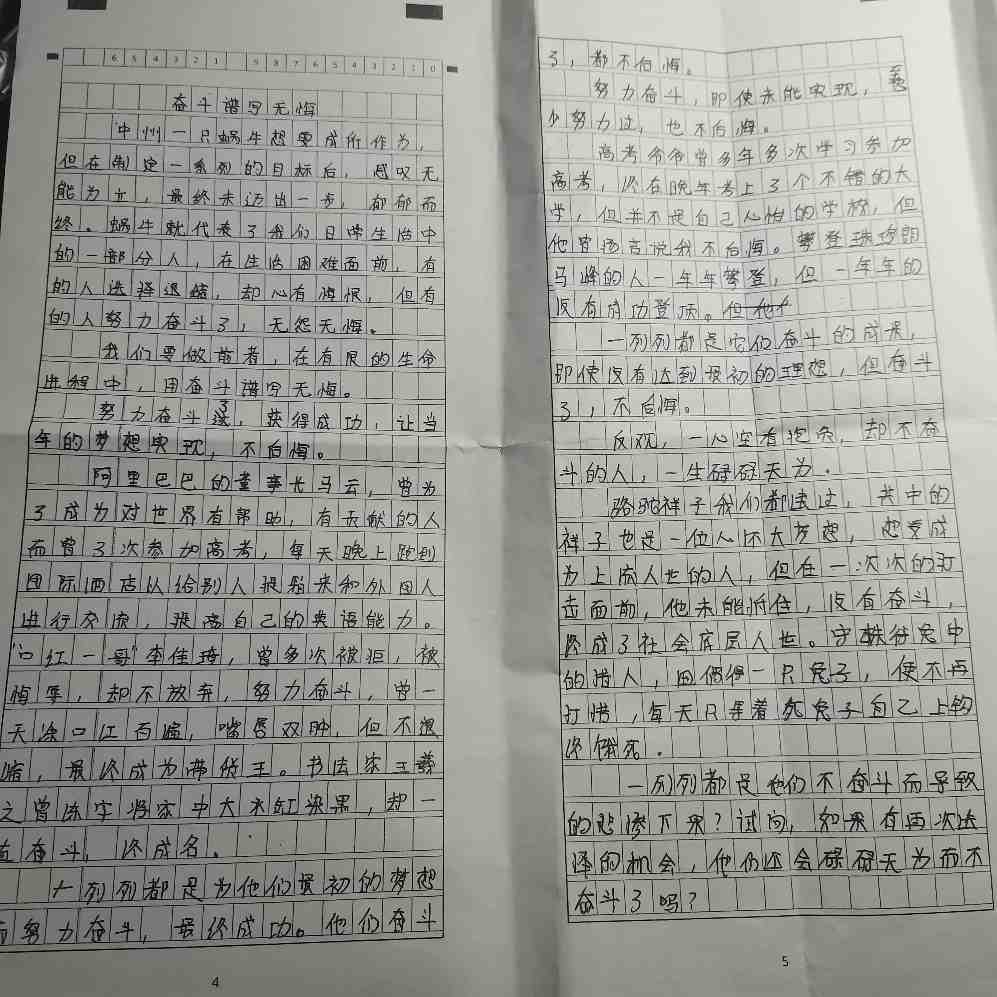 6 5 4 3 2 1 9 8 7 6 5 4 3 2 1 0
奋斗谱写无悔
中州一只蜗牛想要成所作为，
但在制定一系列的目标后，感叹无
能为力，最终未迈出一步，郁郁而
终。蜗牛就代表了我们日常生活中
的一部分人，在生活困难面前，有
的人选择退缩，却心有悔恨，但有
的人努力奋斗了，无怨无悔。
我们要做前者，在有限的生命
进程中，用奋斗谱写无悔。
努力奋斗了，获得成功，让当
年的梦想实现，不后悔。
阿里巴巴的董事长马云，曾为
了成为对世界有帮助，有贡献的人
而曾了次参加高考，每天晚上跑到
国际酒店从给别人提鞋来和外国人
进行交流，提高自己的英语能力。
“口红一哥”李佳琦，曾多次被拒，被
侮辱，却不放弃，努力奋斗，曾一
天涂口江百遍，嘴唇双肿，但不退
缩，最终成为带货王。书法家王羲
之曾练字将家中大水缸染黑，却一
直奋斗，终成名。
一列列都是为他们最初的梦想
而努力奋斗，最终成功。他们奋斗
4
了，都不后悔。
努力奋斗，即使未能实现，至
少努力过，也不后悔。
高考爷爷曾多年多次学习参加
高考，终在晚年考上了个不错的大
学，但并不是自己心怡的学校，但
他曾扬言说我不后悔。攀登珠穆朗
马峰的人一年年攀登，但一年年的
没有成功登顶。但
一列列都是它们奋斗的成果，
即使没有达到最初的理想，但奋斗
了，不后悔。
反观，一心空有抱负，却不奋
斗的人，一生碌碌无为。
骆驼祥子我们都读过，其中的
祥子也是一位人怀大梦想，想要成
为上流人世的人，但在一次次的打
击面前，他未能抵住，没有奋斗，
终成了社会底层人世。守株待兔中
的猎人，因偶得一只兔子，便不再
打猎，每天只等着兔子自己上钩
终饿死．
一列列都是他们不奋斗而导致
的悲惨下果？试问，如果有再次选
择的机会，他们还会碌碌无为而不
奋斗了吗？
5